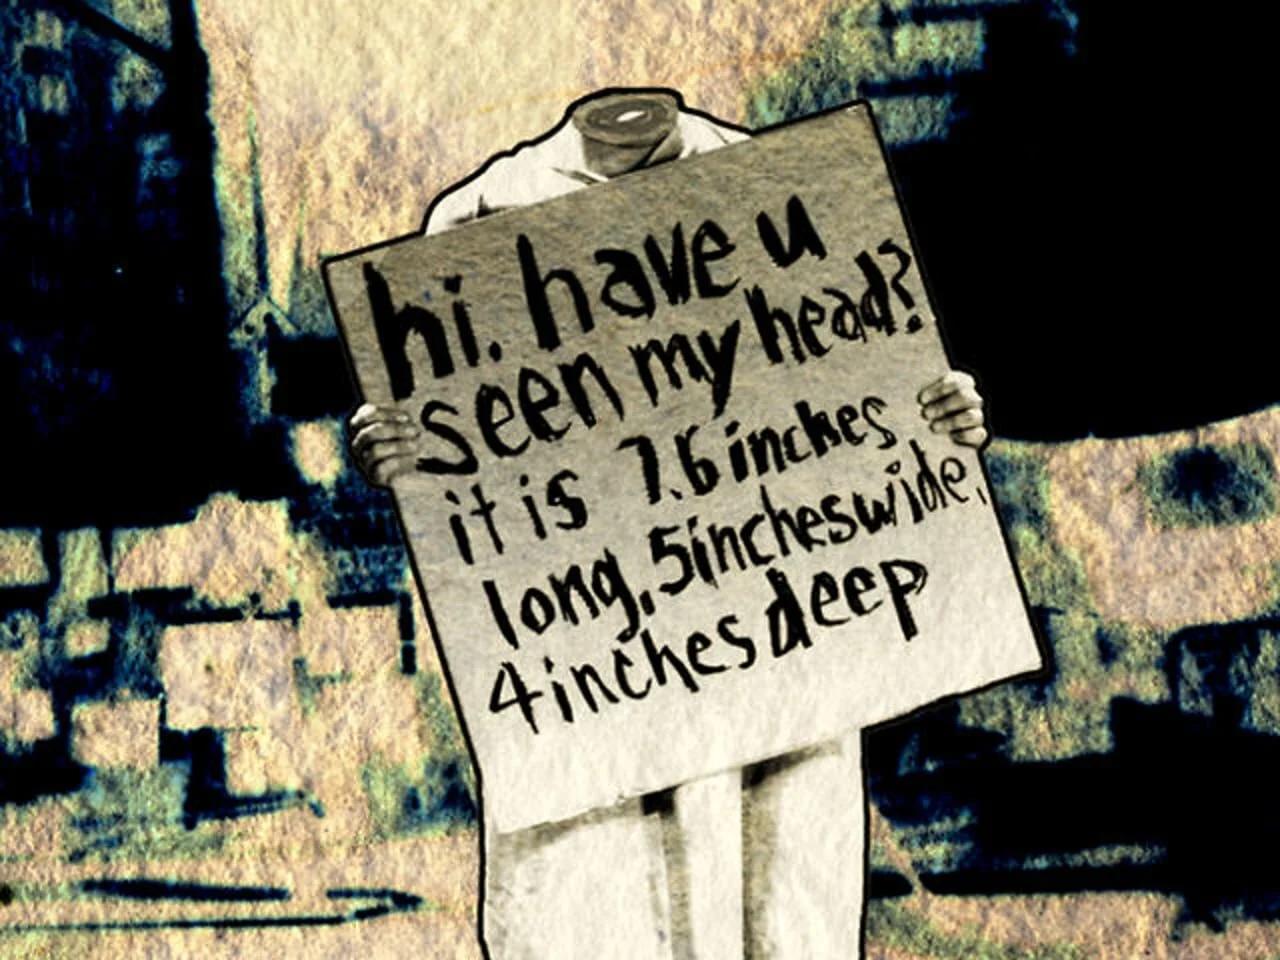 hi. have u
seen my head?
it is 7.6 inches
long, 5 inches wide,
4 inches deep